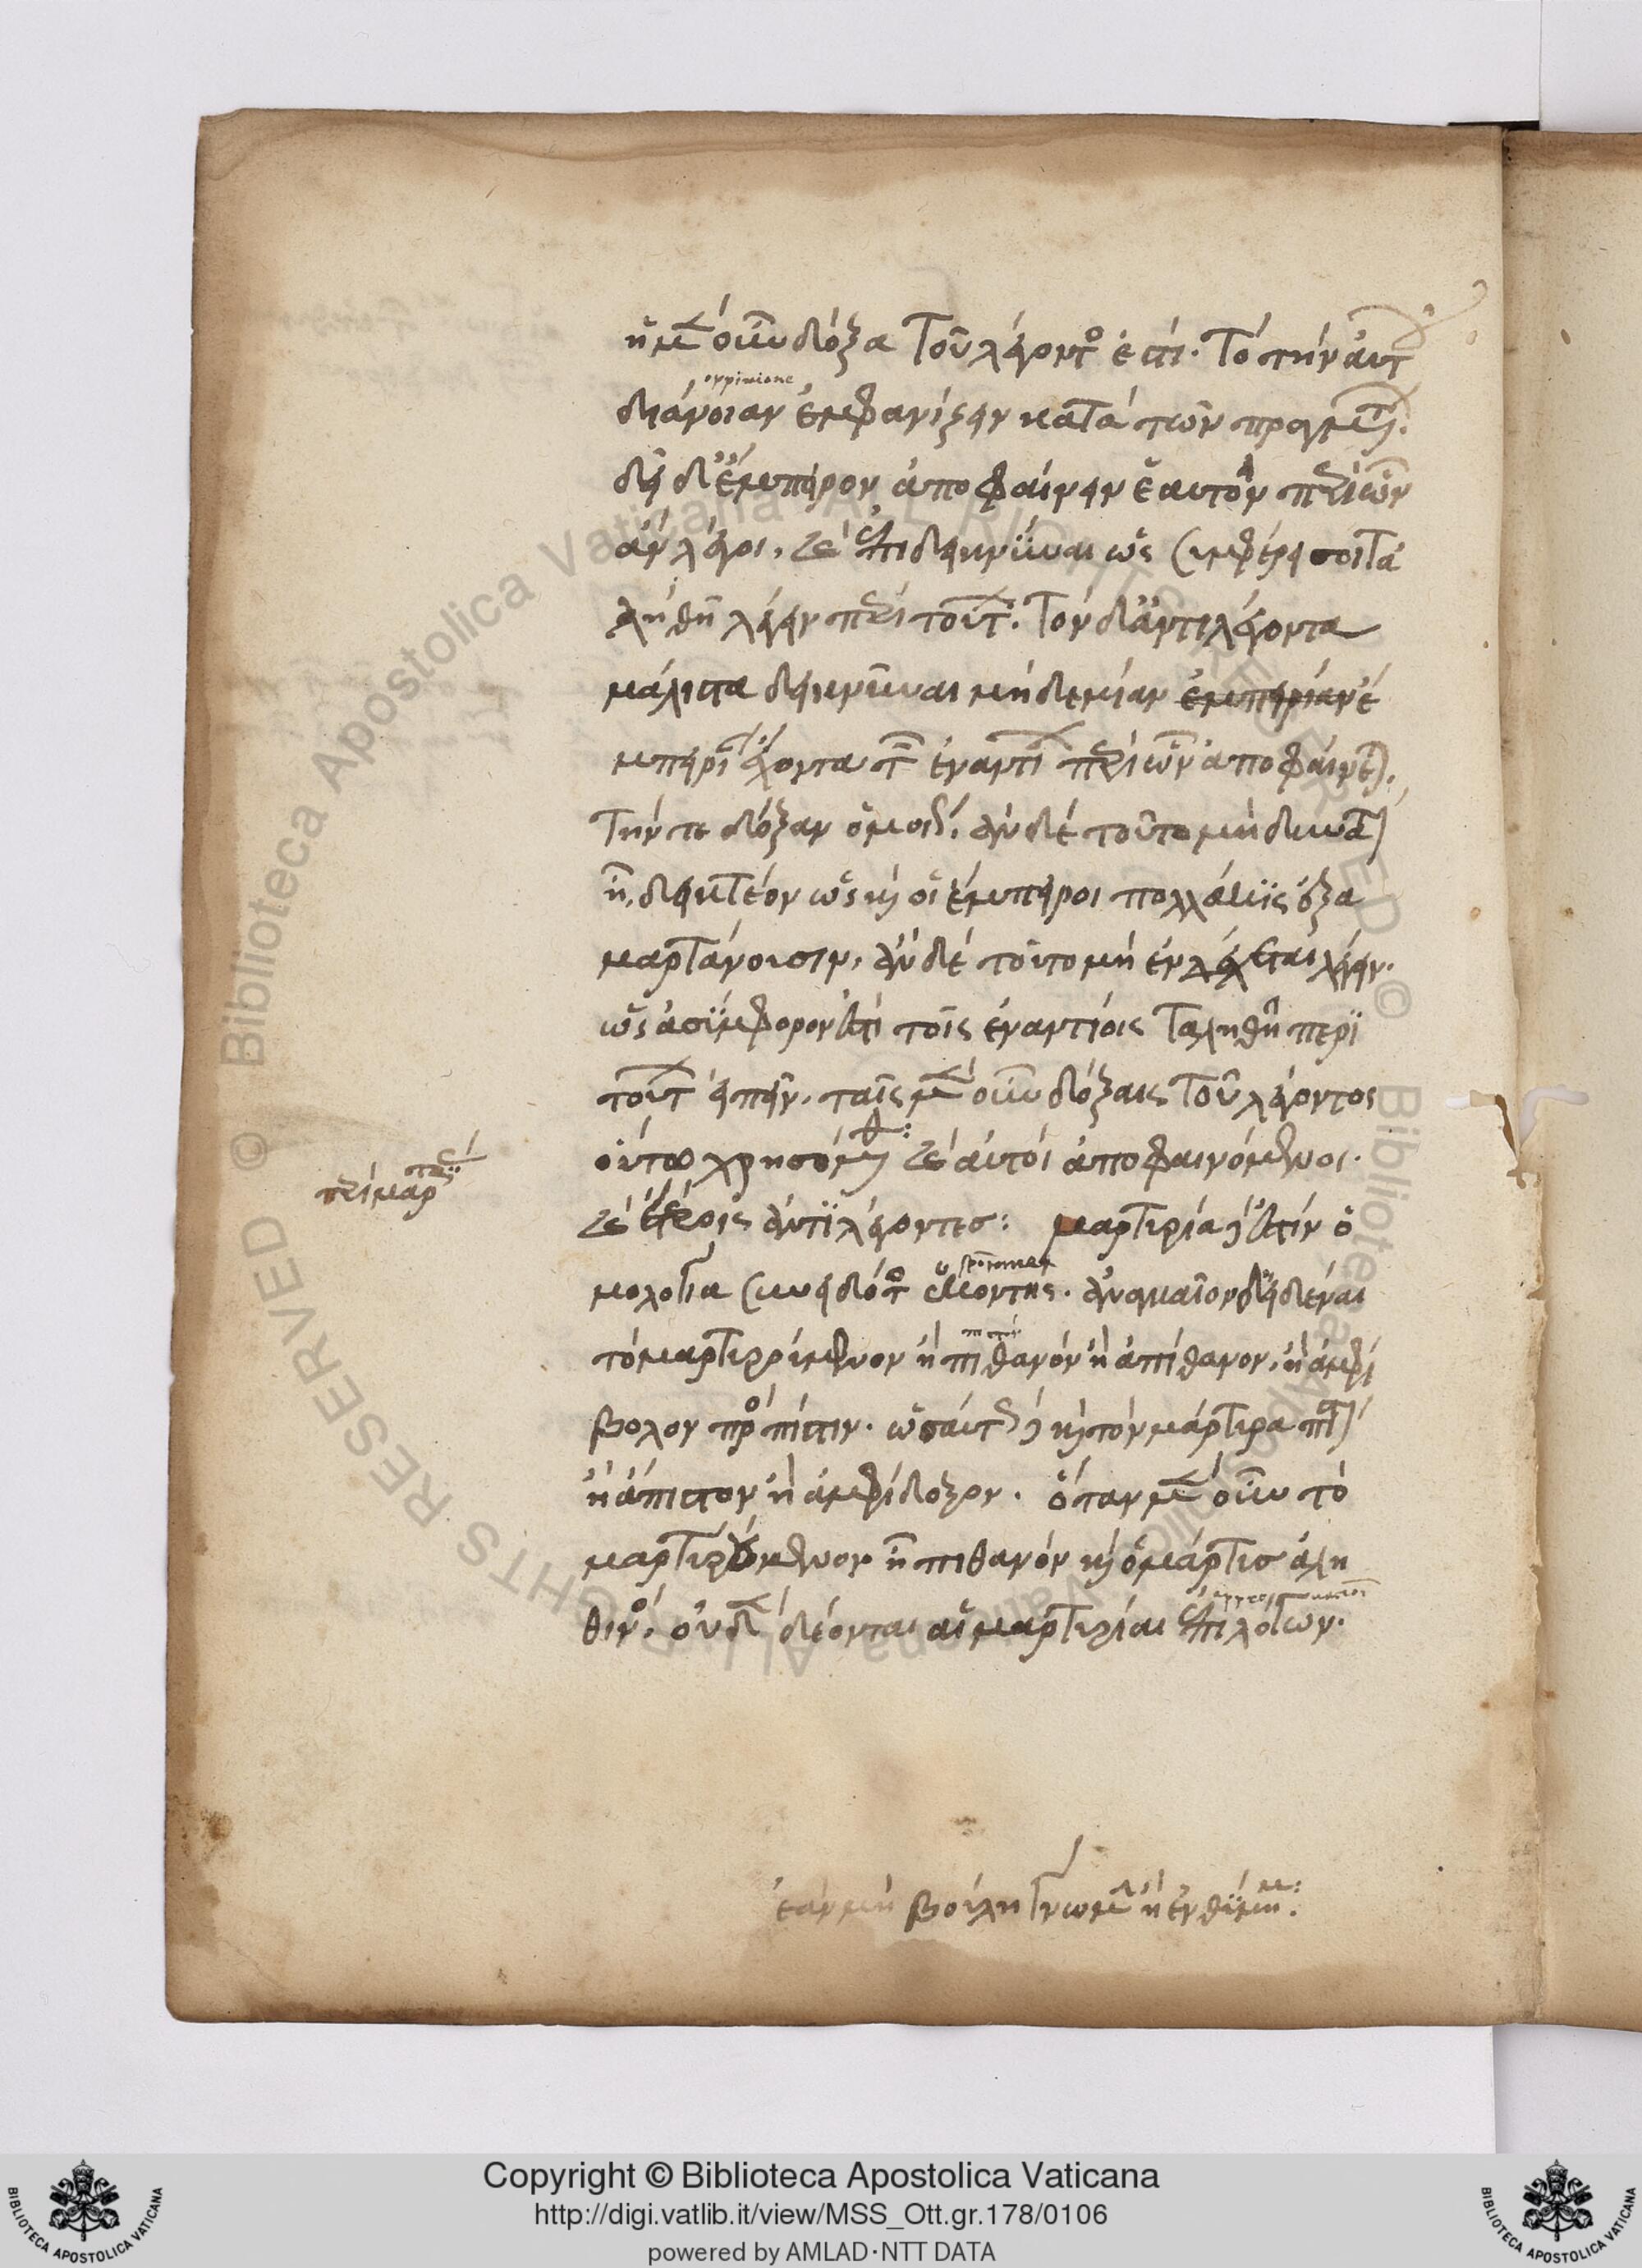 ἡ μὲν οὖν δόξα τοῦ λέγοντος ἐστι. τὸ τὴν αὐτ
oppinione
διάνοιαν ἐμφανίζειν κατὰ τῶν πραγμάτων.
δεῖ δ' ἔμπειρον ἀποφαίνειν ἑαυτὸν περὶ ὧν
ἂν λέγοι, καὶ ἐπιδεικνύναι ὡς συμφέρει σοι τὰ
ληθῆ λέγειν περὶ τούτων. τὸν δ' ἀντιλέγοντα
μάλιστα δεικνύναι μηδεμίαν ἐμπειρίαν ἐ
μπειρίαν ἔχοντα τὸν ἐναντίον περὶ ὧν ἀποφαίνεται.
τήν τε δόξαν ὁμοῦ. ἂν δὲ τοῦτο μὴ δυνατὸν
ᾖ, δεικτέον ὡς καὶ οἱ ἔμπειροι πολλάκις ἐξα
μαρτάνουσιν, ἂν δὲ τοῦτο μὴ ἐνδέχεται λέγειν.
ὡς ἀσύμφορον ἐστὶ τοῖς ἐναντίοις ταληθῆ περὶ
τούτων εἰπεῖν. ταῖς μὲν οὖν δόξαις τοῦ λέγοντος
οὕτω χρησόμεθα: καὶ αὐτοὶ ἀποφαινόμενοι.
καὶ ἑτέροις ἀντιλέγοντες: μαρτυρία δ' ἐστὶν ὁ
περὶ μαρτυρίας
μολογία συνειδότος ἑκόντος. ἀναγκαῖον δὴ εἰδέναι
τὸ μαρτυρούμενον ἢ πιθανὸν ἢ ἀπίθανον, ἢ ἀμφί
βολον πρὸς πίστιν. ὡσαύτως δὲ καὶ τὸν μάρτυρα πιστὸν
ἢ ἄπιστον ἢ ἀμφίδοξον. ὅταν μὲν οὖν τὸ
μαρτυρούμενον ᾖ πιθανὸν καὶ ὁ μάρτυς ἀλη
θινός, οὐδὲν δέονται αἱ μαρτυρίαι ἐπιλόγων.
ἐὰν μὴ βούλῃ γνώμην ἢ ἐνθύμημα:
Copyright © Biblioteca Apostolica Vaticana
http://digi.vatlib.it/view/MSS_Ott.gr.178/0106
powered by AMLAD·NTT DATA
BIBLIOTECA APOSTOLICA VATICANA
BIBLIOTECA APOSTOLICA VATICANA